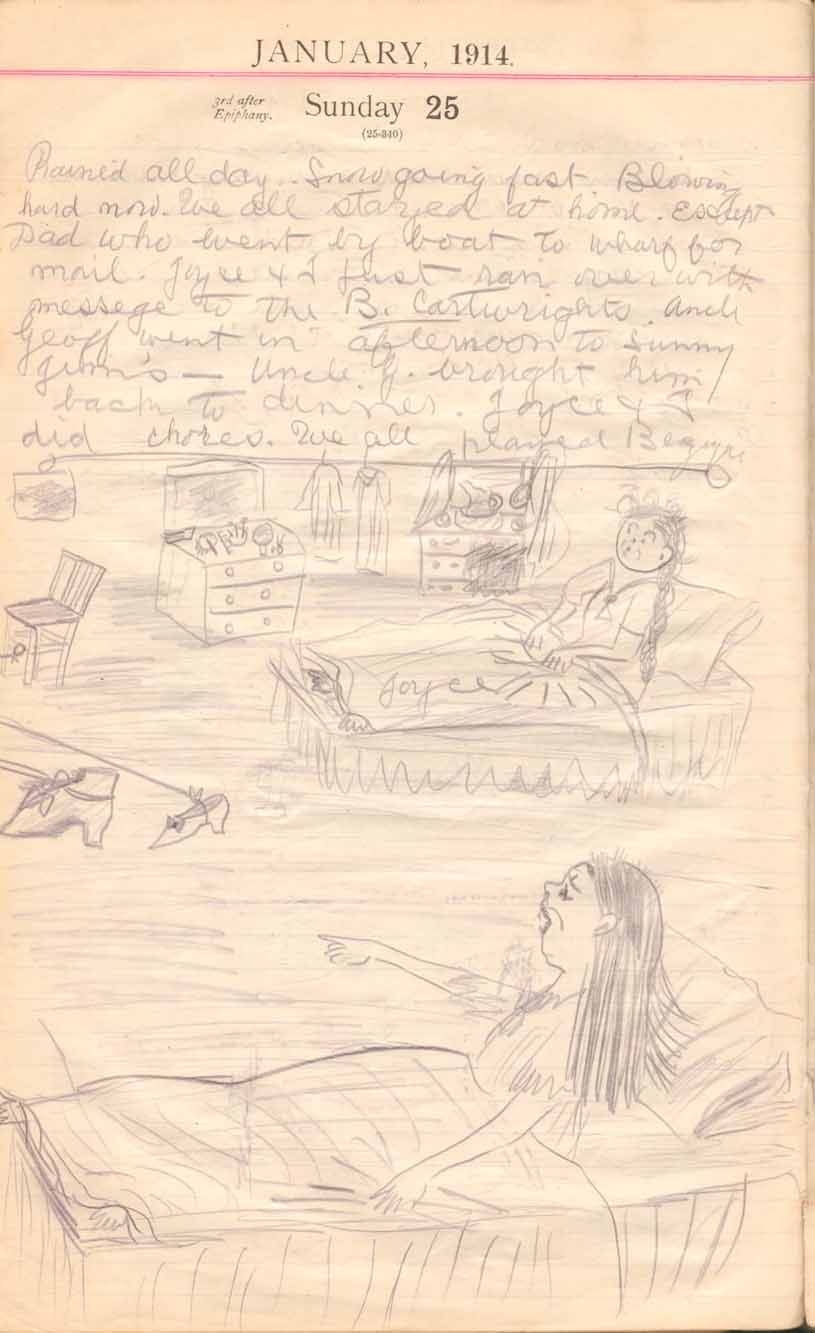 JANUARY, 1914.
3rd after
Epiphany.
Sunday 25
(25-340)
Rained all day. Snow going fast Blowing
hard now. We all stayed at home. Except
Dad who went by boat to wharf for
mail. Joyce & I just ran over with
messege to the B. Cartwrights. Uncle
Geoff went in afternoon to Sunny
Jim's — Uncle G. brought him
back to dinner. Joyce & I
did chores. We all played
Joyce